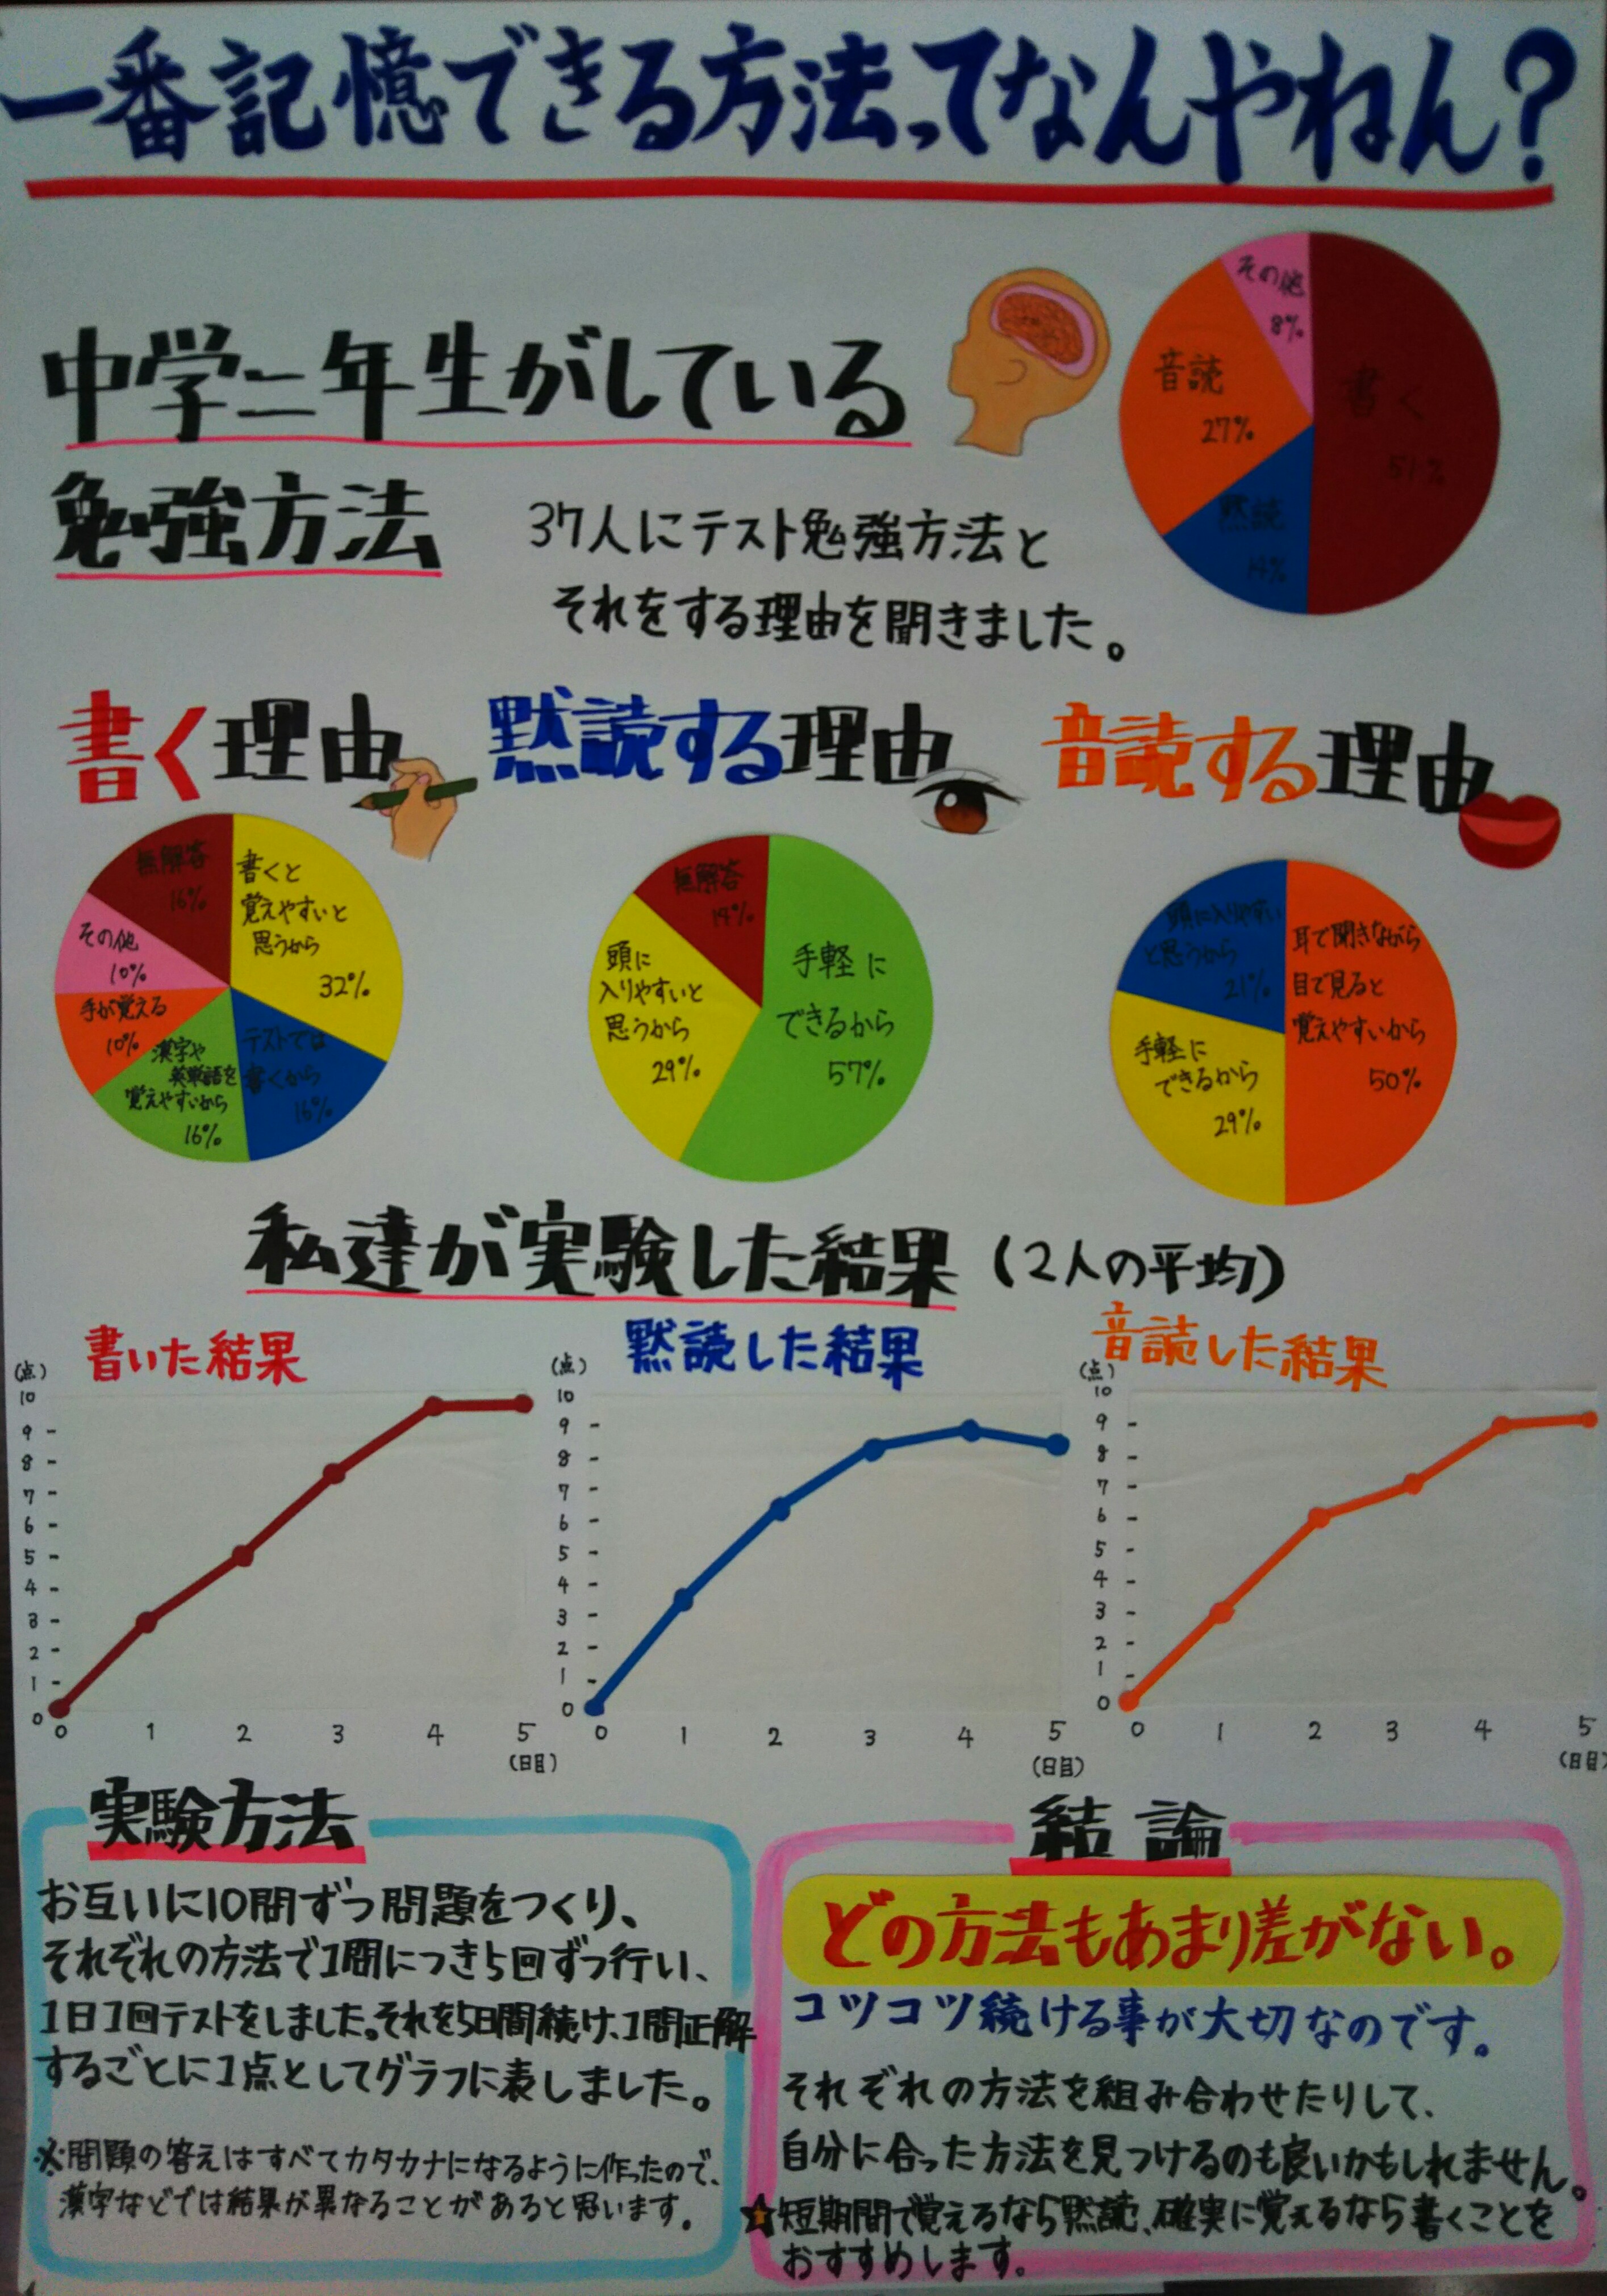 一番記憶できる方法ってなんやねん?
中学二年生がしている
勉強方法
37人にテスト勉強方法と
それをする理由を聞きました。
書く
51%
黙読
14%
音読
27%
その他
8%
書く理由
書くと
覚えやすいと
思うから
32%
テストでは
書くから
16%
漢字や
英単語を
覚えやすいから
16%
手が覚える
10%
その他
10%
無解答
16%
黙読する理由
手軽に
できるから
57%
頭に
入りやすいと
思うから
29%
無解答
14%
音読する理由
耳で聞きながら
目で見ると
覚えやすいから
50%
手軽に
できるから
29%
頭に入りやすい
と思うから
21%
私達が実験した結果(2人の平均)
書いた結果
(点)
10
9
8
7
6
5
4
3
2
1
0
0 1 2 3 4 5
(日目)
黙読した結果
(点)
10
9
8
7
6
5
4
3
2
1
0
0 1 2 3 4 5
(日目)
音読した結果
(点)
10
9
8
7
6
5
4
3
2
1
0
0 1 2 3 4 5
(日目)
実験方法
お互いに10問ずつ問題をつくり、
それぞれの方法で1問につき5回ずつ行い、
1日1回テストをしました。それを5日間続け、1問正解
するごとに1点としてグラフに表しました。
※問題の答えはすべてカタカナになるように作ったので、
漢字などでは結果が異なることがあると思います。
結論
どの方法もあまり差がない。
コツコツ続ける事が大切なのです。
それぞれの方法を組み合わせたりして、
自分に合った方法を見つけるのも良いかもしれません。
☆短期間で覚えるなら黙読、確実に覚えるなら書くことを
おすすめします。